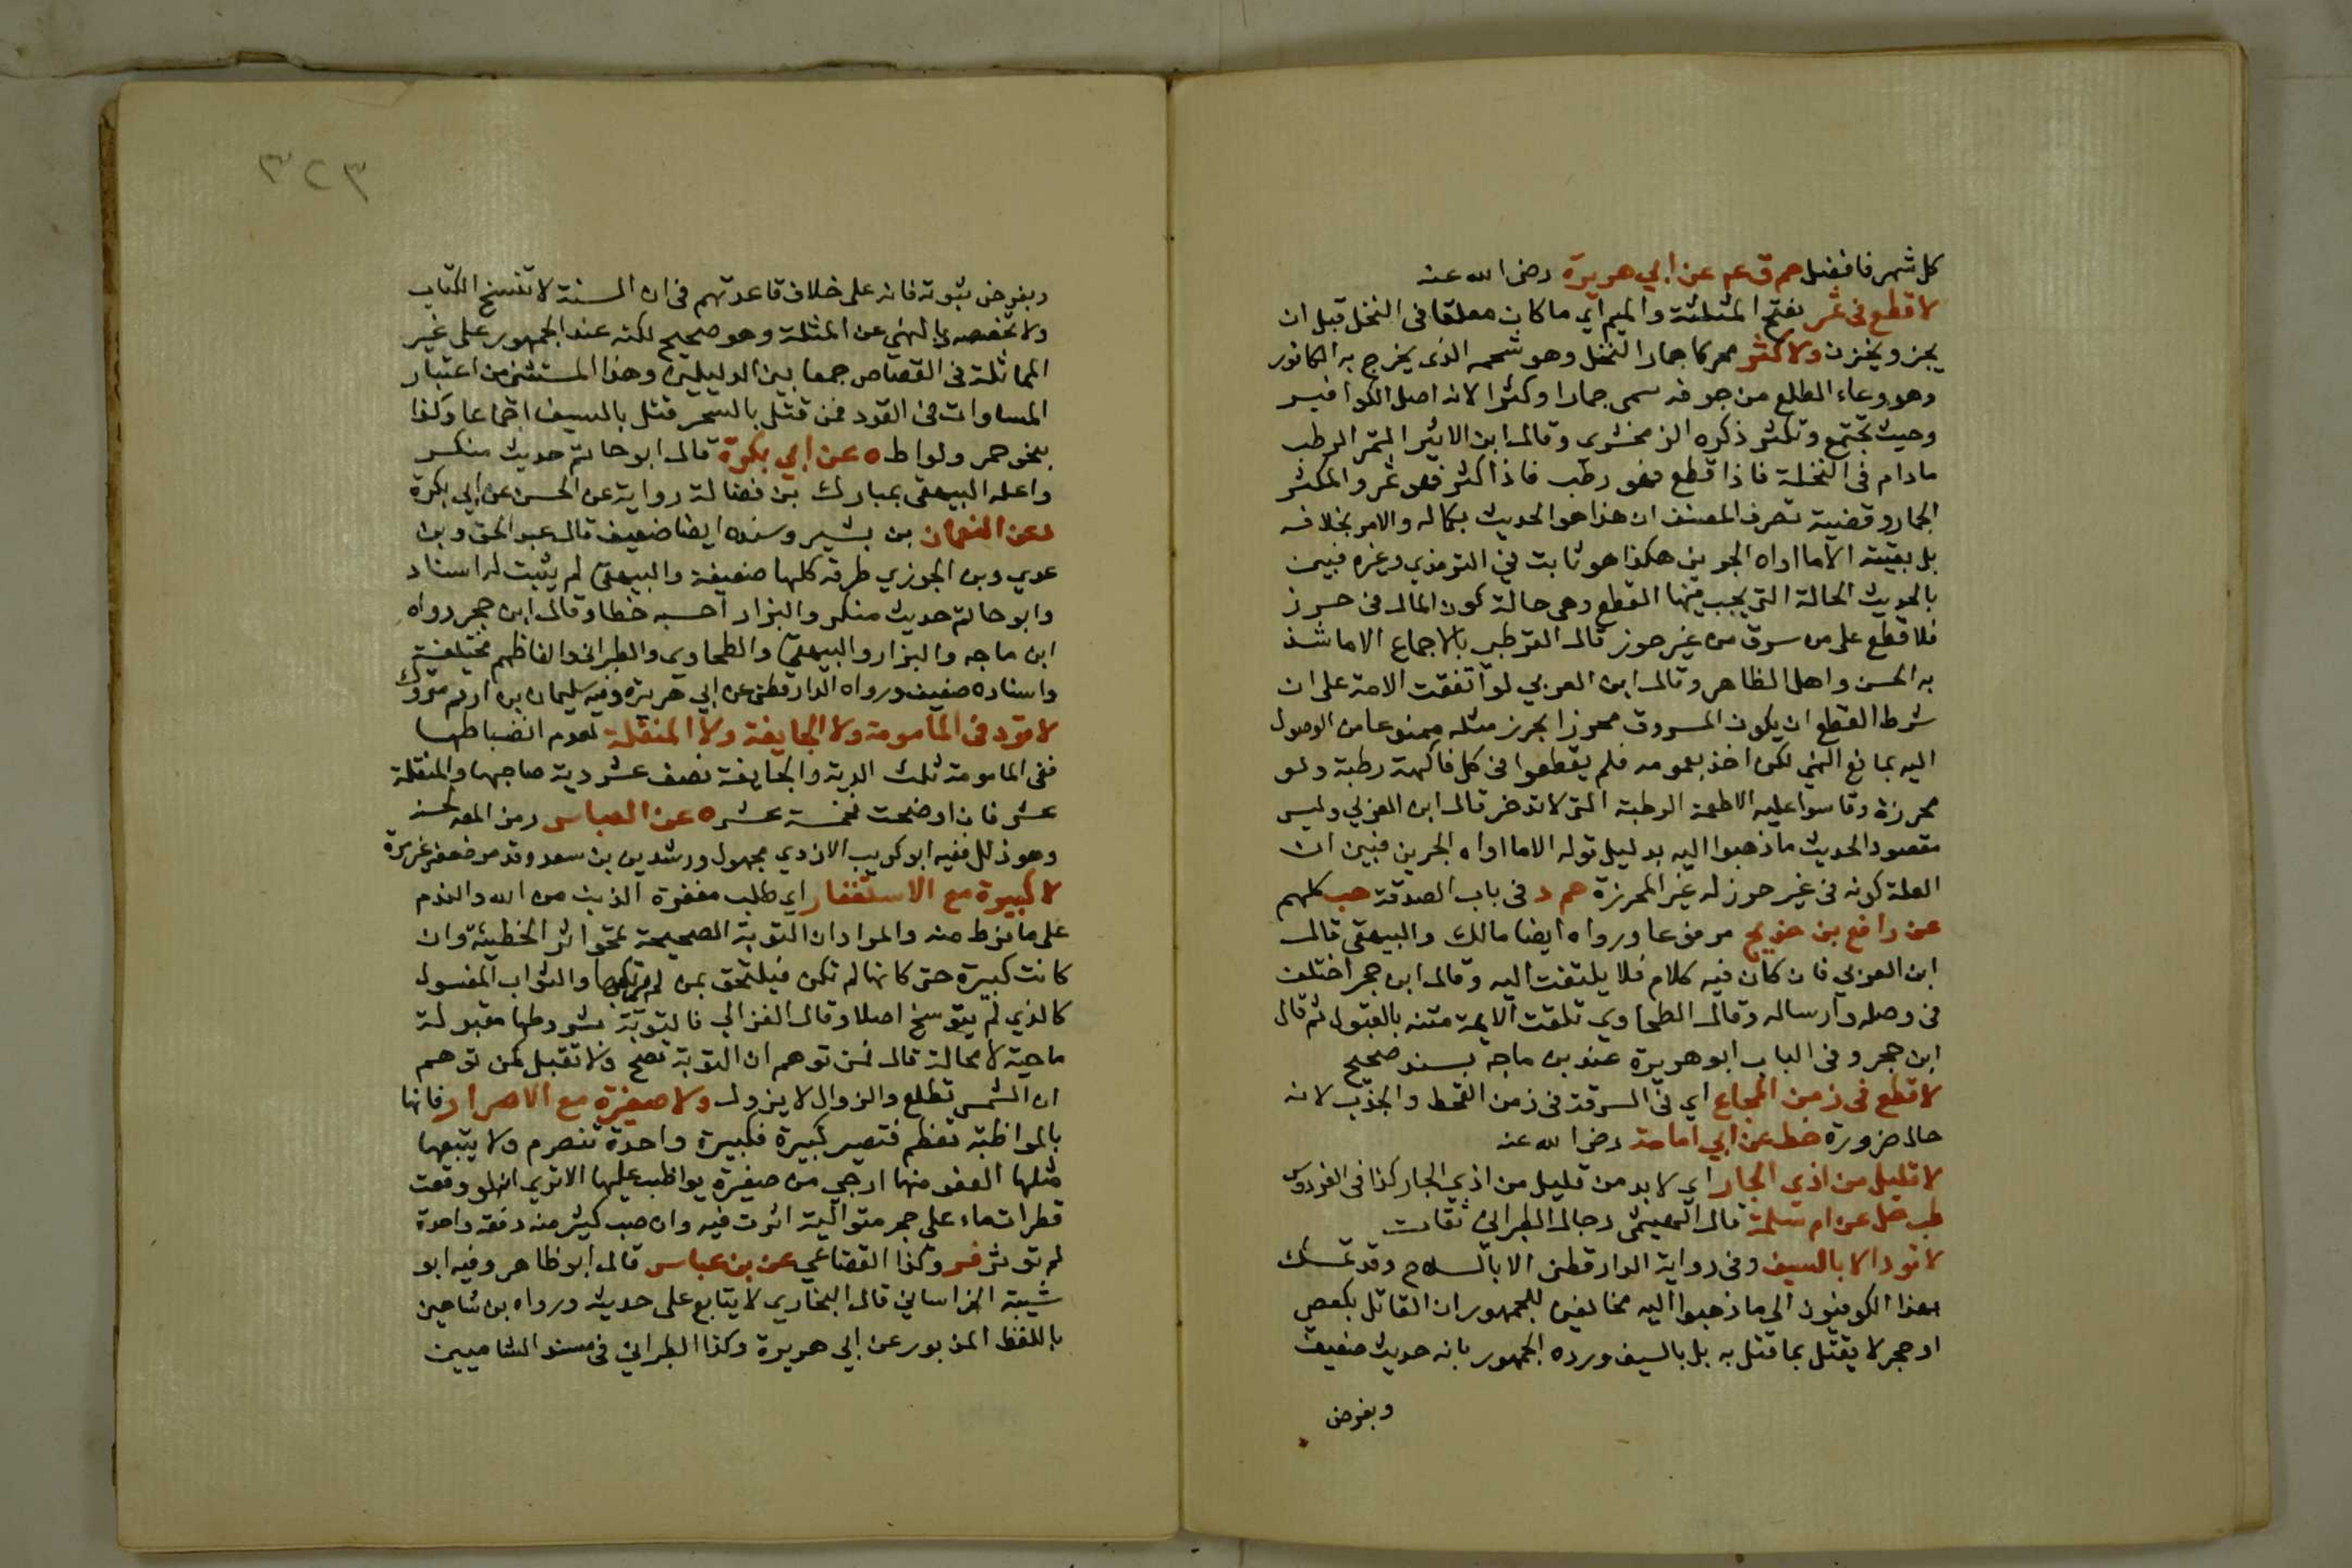 كل شهر فافضل حم ق عم عن ابي هريرة رضى الله عنه
لا قطع فى ثمر بفتح المثلثة والميم اي ما كان معلقا فى النخل قبل ان
يجز ويخزن ولا كثر محركا جمار النخل وهو شحمه الذى يخرج به الكافور
وهو وعاء الطلع من جوفه سمى جمارا وكثرا لانه اصل الكوافير
وحيث تجتمع وتكثر ذكره الزمخشرى وقال ابن الاثير الثمر الرطب
مادام فى النخلة فاذا قطع فهو رطب فاذا كثر فهو ثمر والكثر
الجمار وقضية تصرف المصنف ان هذا هو الحديث بكماله والامر بخلافه
بل بقيته الا ما اواه الجرين هكذا هو ثابت في الترمذي وغيره فبين
بالحديث الحالة التي يجب فيها القطع وهى حالة كون المال فى حرز
فلا قطع على من سرق من غير حرز قال القرطبي بالاجماع الا ما شذ
به الحسن واهل الظاهر وقال ابن العربي لو اتفقت الامة على ان
شرط القطع ان يكون المسروق محرزا بحرز مثله ممنوعا من الوصول
اليه بمانع النهي لكن اخذ بعمومه فلم يقطعوا فى كل فاكهة رطبة ولو
محرزة وقاسوا عليه الاطعمة الرطبة التى لا تدخر قال ابن العربي وليس
مقصود الحديث ما ذهبوا اليه بدليل قوله الا ما اواه الجرين فبين ان
العلة كونه فى غير حرز له غير المحرزة حم د فى باب الصدقة حب كلهم
عن رافع بن خديج مرفوعا ورواه ايضا مالك والبيهقى قال
ابن العربي فان كان فيه كلام فلا يلتفت اليه وقال ابن حجر اختلف
فى وصله وارساله وقال الطحاوي تلقت الايمة متنه بالقبول ثم قال
ابن حجر وفى الباب ابو هريرة عند بن ماجه بسند صحيح
لا قطع فى زمن المجاع اي فى السرقة فى زمن القحط والجدب لانه
حال ضرورة خط عن ابي امامة رضى الله عنه
لا قليل من اذى الجار اي لا بد من قليل من اذي الجار كذا فى الفردوس
طب حل عن ام سلمة قال الهيثمى رجال الطبرانى ثقات
لا قود الا بالسيف وفى رواية الدارقطنى الا بالسلاح وقد تمسك
بهذا الكوفيون الى ما ذهبوا اليه مخالفين للجمهور ان القاتل بكعصى
او حجر لا يقتل بما قتل به بل بالسيف ورده الجمهور بانه حديث ضعيف
وبفرض
٣٢٣
وبفرض ثبوته فانه على خلاف قاعدتهم فى ان السنة لا تنسخ الكتاب
ولا تخصصه بالنهي عن المثلة وهو صحيح لكنه عند الجمهور على غير
المماثلة فى القصاص جمعا بين الدليلين وهذا المستثنى من اعتبار
المساوات فى القود فمن قتل بالسحر قتل بالسيف اجماعا وكذا
بنحو خمر ولواط ه عن ابي بكرة قال ابو حاتم حديث منكر
واعله البيهقى بمبارك بن فضالة رواية عن الحسن عن ابي بكرة
وعن النعمان بن بشير وسنده ايضا ضعيف قال عبد الحق وبن
عدي وبن الجوزي طرقه كلها ضعيفة والبيهقى لم يثبت له اسناد
وابو حاتم حديث منكر والبزار احسبه خطا وقال ابن حجر رواه
ابن ماجه والبزار والبيهقى والطحاوى والطبرانى والفاظهم مختلفة
واسناده ضعيف ورواه الدارقطنى عن ابي هريرة وفيه سليمان بن ارقم متروك
لا قود فى المامومة ولا الجايفة ولا المنقلة لعدم انضباطها
ففى المامومة ثلث الدية والجايفة نصف عشر دية صاحبها والمنقلة
عشر فان اوضحت فخمسة عشر ه عن العباس رمز المصـ لحسنه
وهو ذلل ففيه ابو كريب الازدي مجهول ورشدين بن سعد وقد مر ضعفه غير مرة
لا كبيرة مع الاستغفار اي طلب مغفرة الذنب من الله والندم
على ما فرط منه والمراد ان التوبة الصحيحة تمحو اثر الخطيئة وان
كانت كبيرة حتى كانها لم تكن فيلتحق بمن لم يرتكبها والثواب المغسول
كالذي لم يتوسخ اصلا وقال الغزالي فالتوبة بشروطها مقبولة
ماحية لا محالة قال فمن توهم ان التوبة تصح ولا تقبل كمن توهم
ان الشمس تطلع والزوال لا يزول ولا صغيرة مع الاصرار فانها
بالمواظبة تعظم فتصير كبيرة فكبيرة واحدة تنصرم ولا يتبعها
مثلها العفو منها ارجي من صغيرة يواظب عليها الا ترى انه لو وقعت
قطرات ماء على حجر متوالية اثرت فيه وان صب كثير منه دفعة واحدة
لم توثر فر وكذا القضاعي عن بن عباس قال ابو طاهر وفيه ابو
شيبة الخراساني قال البخاري لا يتابع على حديثه ورواه بن شاهين
باللفظ المزبور عن ابي هريرة وكذا الطبرانى فى مسند الشاميين